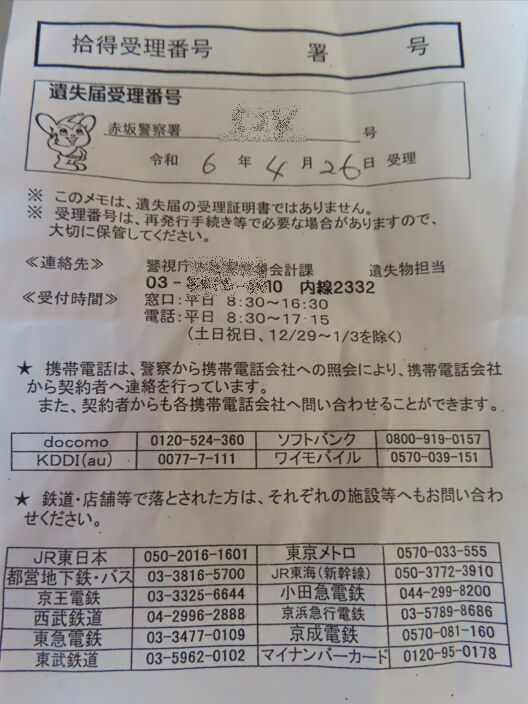 拾得受理番号 署 号
遺失届受理番号
赤坂警察署 号
令和 6 年 4 月 26 日 受理
※ このメモは、遺失届の受理証明書ではありません。
※ 受理番号は、再発行手続き等で必要な場合がありますので、
大切に保管してください。
≪連絡先≫ 警視庁 会計課 遺失物担当
03- 10 内線2332
≪受付時間≫ 窓口:平日 8:30~16:30
電話:平日 8:30~17:15
(土日祝日、12/29~1/3を除く)
★ 携帯電話は、警察から携帯電話会社への照会により、携帯電話会社
から契約者へ連絡を行っています。
また、契約者からも各携帯電話会社へ問い合わせることができます。
docomo 0120-524-360 ソフトバンク 0800-919-0157
KDDI(au) 0077-7-111 ワイモバイル 0570-039-151
★ 鉄道・店舗等で落とされた方は、それぞれの施設等へもお問い合わ
せください。
JR東日本 050-2016-1601 東京メトロ 0570-033-555
都営地下鉄・バス 03-3816-5700 JR東海(新幹線) 050-3772-3910
京王電鉄 03-3325-6644 小田急電鉄 044-299-8200
西武鉄道 04-2996-2888 京浜急行電鉄 03-5789-8686
東急電鉄 03-3477-0109 京成電鉄 0570-081-160
東武鉄道 03-5962-0102 マイナンバーカード 0120-95-0178